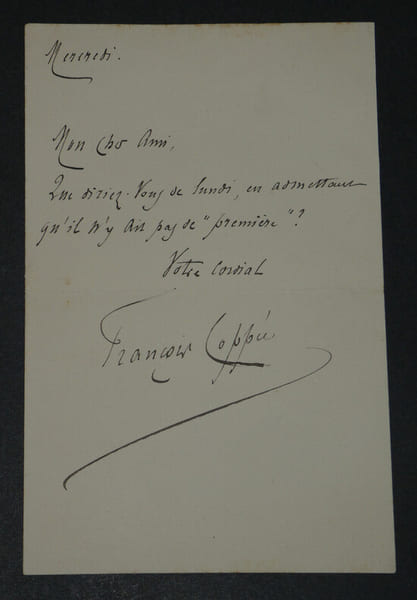 Mercredi.
Mon cher Ami,
Que diriez-vous de lundi, en admettant
qu'il n'y ait pas de "première"?
Votre cordial
François Coppée